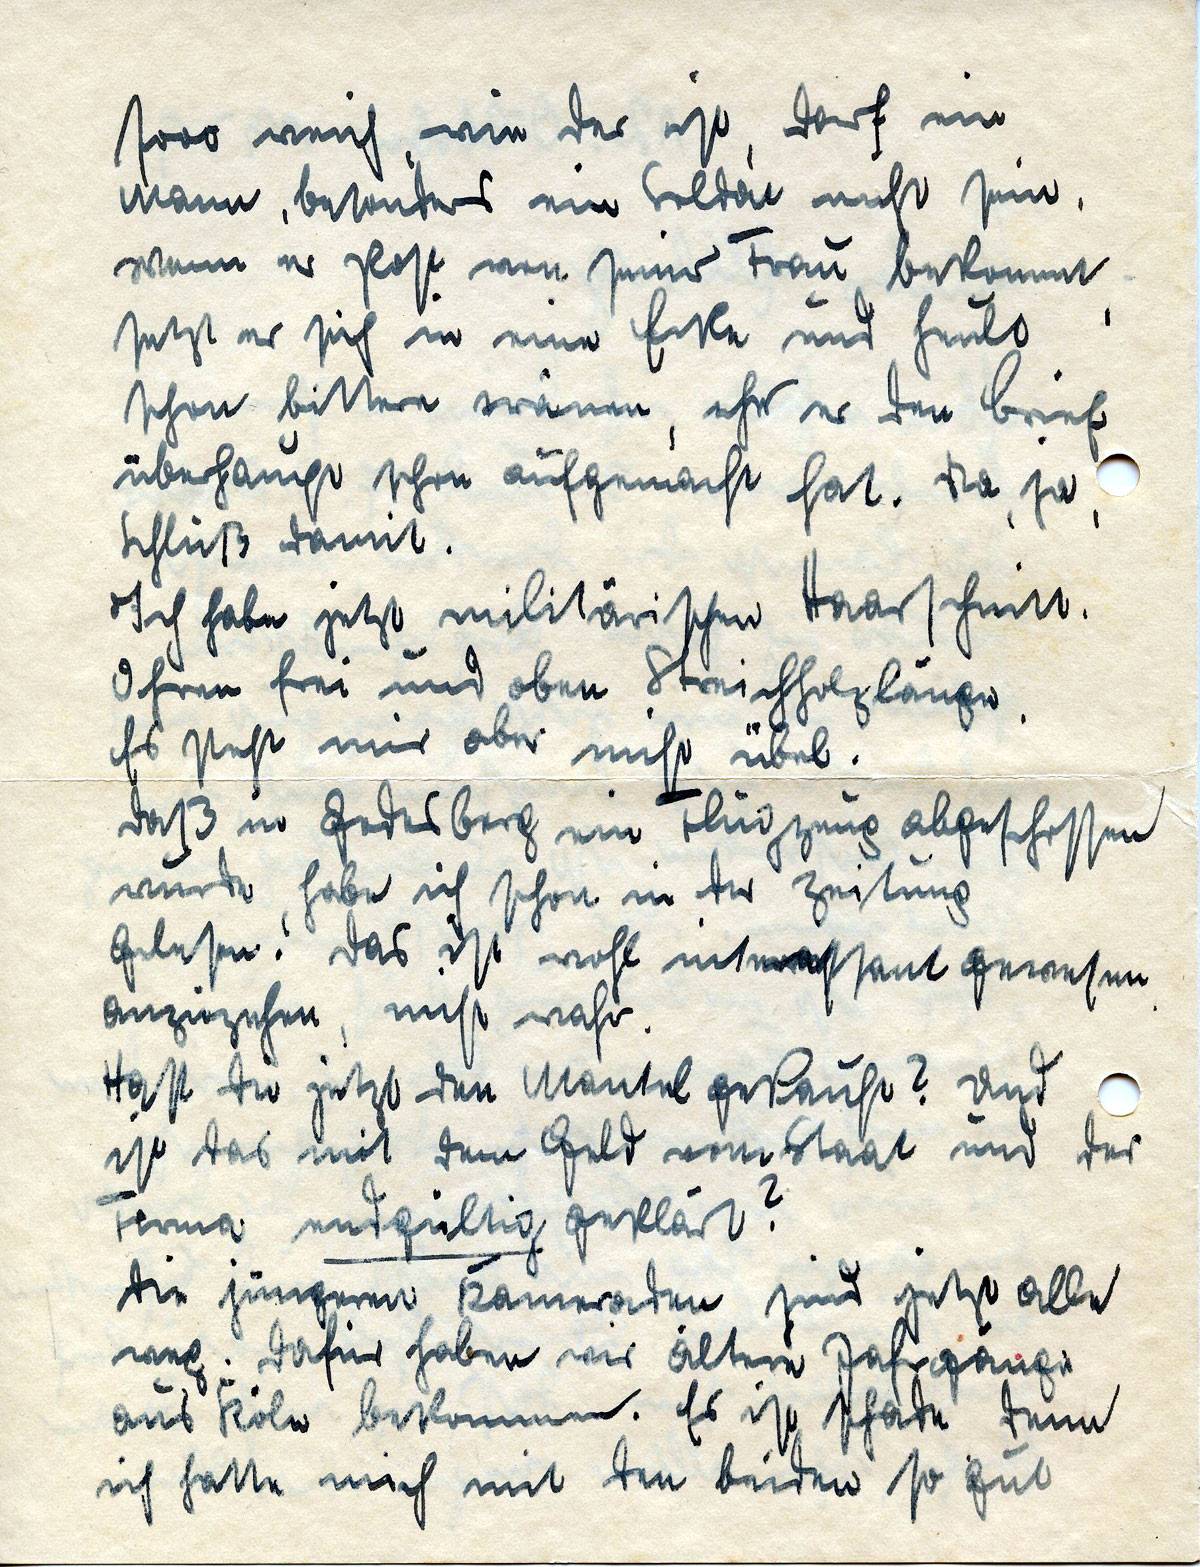 sooo weich, wie der ist, darf ein
Mann, besonders ein Soldat nicht sein.
Wenn er Post von seiner Frau bekommt,
setzt er sich in eine Ecke und heult
schon bittere Tränen, eher er den Brief
überhaupt schon aufgemacht hat. Na, ja,
Schluß damit.
Ich habe jetzt militärischen Haarschnitt.
Ohren frei und oben Streichholzlänge.
Es steht mir aber nicht übel.
Daß in Godesberg ein Flugzeug abgeschossen
wurde, habe ich schon in der Zeitung
gelesen. Das ist wohl interessant gewesen
anzusehen, nicht wahr.
Hast Du jetzt den Mantel gekauft? Und
ist das mit dem Geld vom Staat und der
Firma endgültig geklärt?
Die jüngeren Kameraden sind jetzt alle
weg. Dafür haben wir ältere Jahrgänge
aus Köln bekommen. Es ist schade denn
ich hatte mich mit den beiden so gut